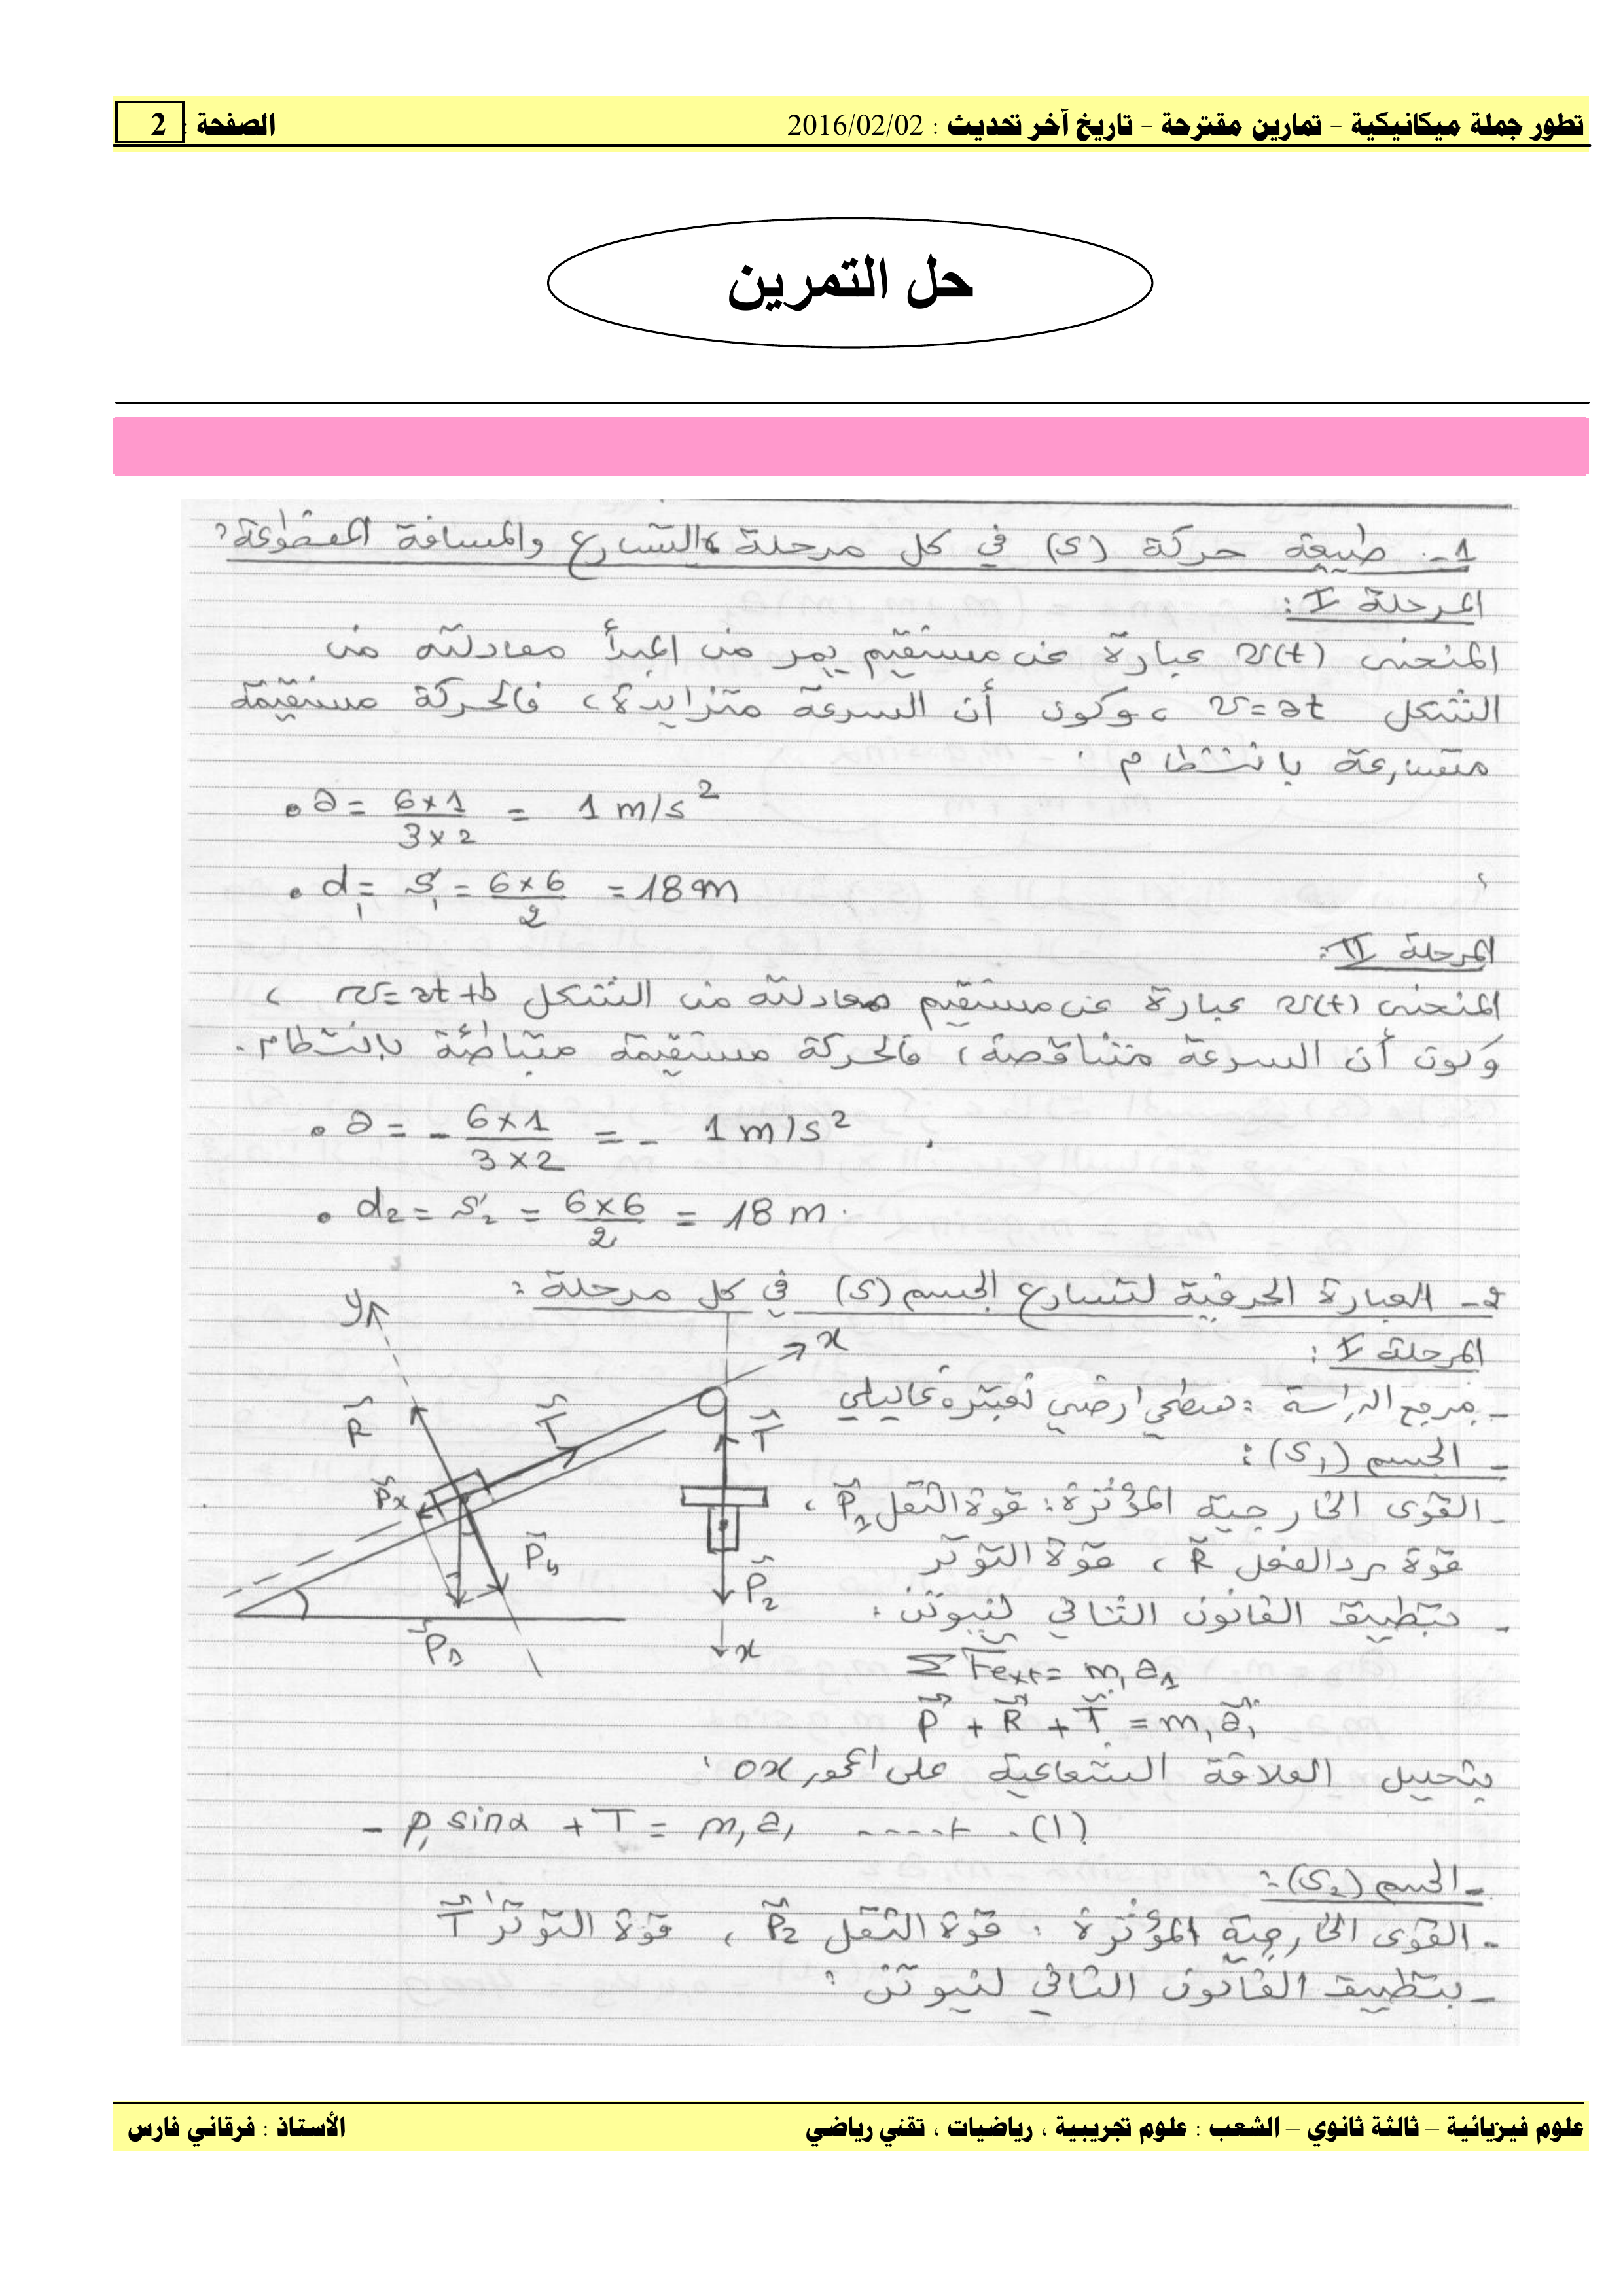 تطور جملة ميكانيكية - تمارين مقترحة - تاريخ آخر تحديث : 2016/02/02 الصفحة : 2
حل التمرين
1- طبيعة حركة (S) في كل مرحلة والتسارع والمسافة المقطوعة:
المرحلة I :
المنحنى v(t) عبارة عن مستقيم يمر من المبدأ معادلته من
الشكل v=at ، وكون أن السرعة متزايدة، فالحركة مستقيمة
متسارعة بانتظام .
• a = 6×1 / 3×2 = 1 m/s²
• d₁ = S₁ = 6×6 / 2 = 18 m
المرحلة II :
المنحنى v(t) عبارة عن مستقيم معادلته من الشكل v=at+b ،
وكون أن السرعة متناقصة، فالحركة مستقيمة متباطئة بانتظام.
• a = - 6×1 / 3×2 = - 1 m/s²
• d₂ = S₂ = 6×6 / 2 = 18 m.
2- العبارة الحرفية لتسارع الجسم (S) في كل مرحلة :
المرحلة I :
- مرجع الدراسة : سطحي أرضي نعتبره غاليلي
- الجسم (S₁) :
- القوى الخارجية المؤثرة : قوة الثقل P₁ ،
قوة رد الفعل R ، قوة التوتر
- بتطبيق القانون الثاني لنيوتن :
y
x
R
T
T
Px
Py
P₁
P₂
x
Σ Fext = m₁a₁
P + R + T = m₁a₁
بتحليل العلاقة الشعاعية على المحور ox :
- P₁ sinα + T = m₁a₁ ...... (1)
- الجسم (S₂) :
- القوى الخارجية المؤثرة : قوة الثقل P₂ ، قوة التوتر T
- بتطبيق القانون الثاني لنيوتن :
علوم فيزيائية – ثالثة ثانوي – الشعب : علوم تجريبية ، رياضيات ، تقني رياضي الأستاذ : فرقاني فارس